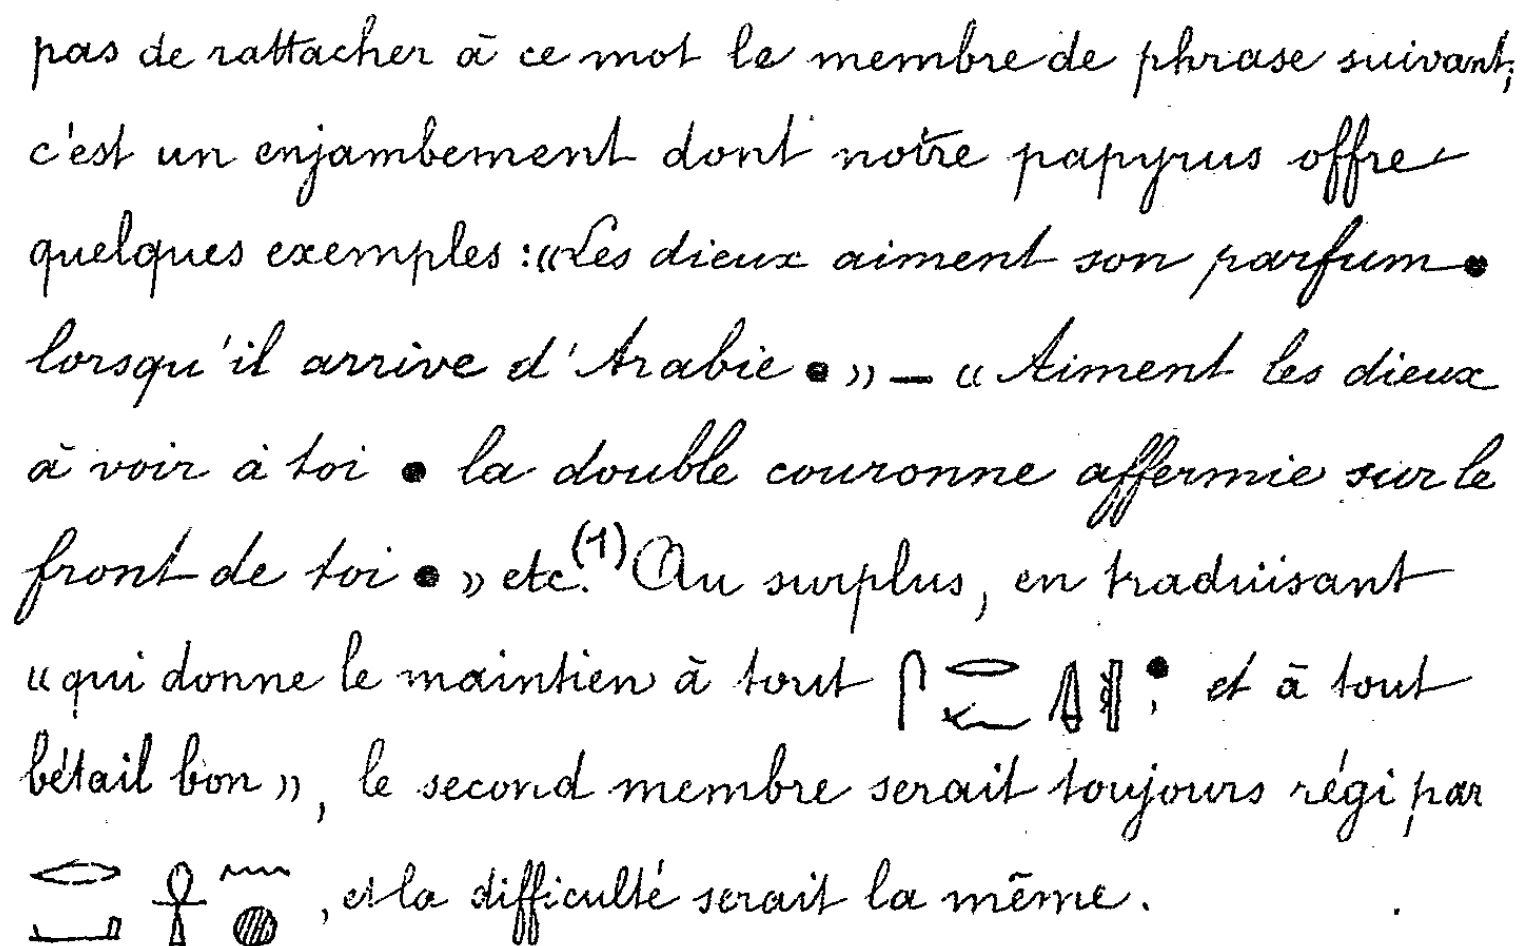 pas de rattacher à ce mot le membre de phrase suivant;
c'est un enjambement dont notre papyrus offre
quelques exemples : «Les dieux aiment son parfum ●
lorsqu'il arrive d'Arabie ● » — « Aiment les dieux
à voir à toi ● la double couronne affermie sur le
front de toi ● » etc.(1) Au surplus, en traduisant
«qui donne le maintien à tout 𓋴 𓂋 ● ; et à tout
bétail bon», le second membre serait toujours régi par
𓂋 𓋹 𓈖 𓐍, et la difficulté serait la même.